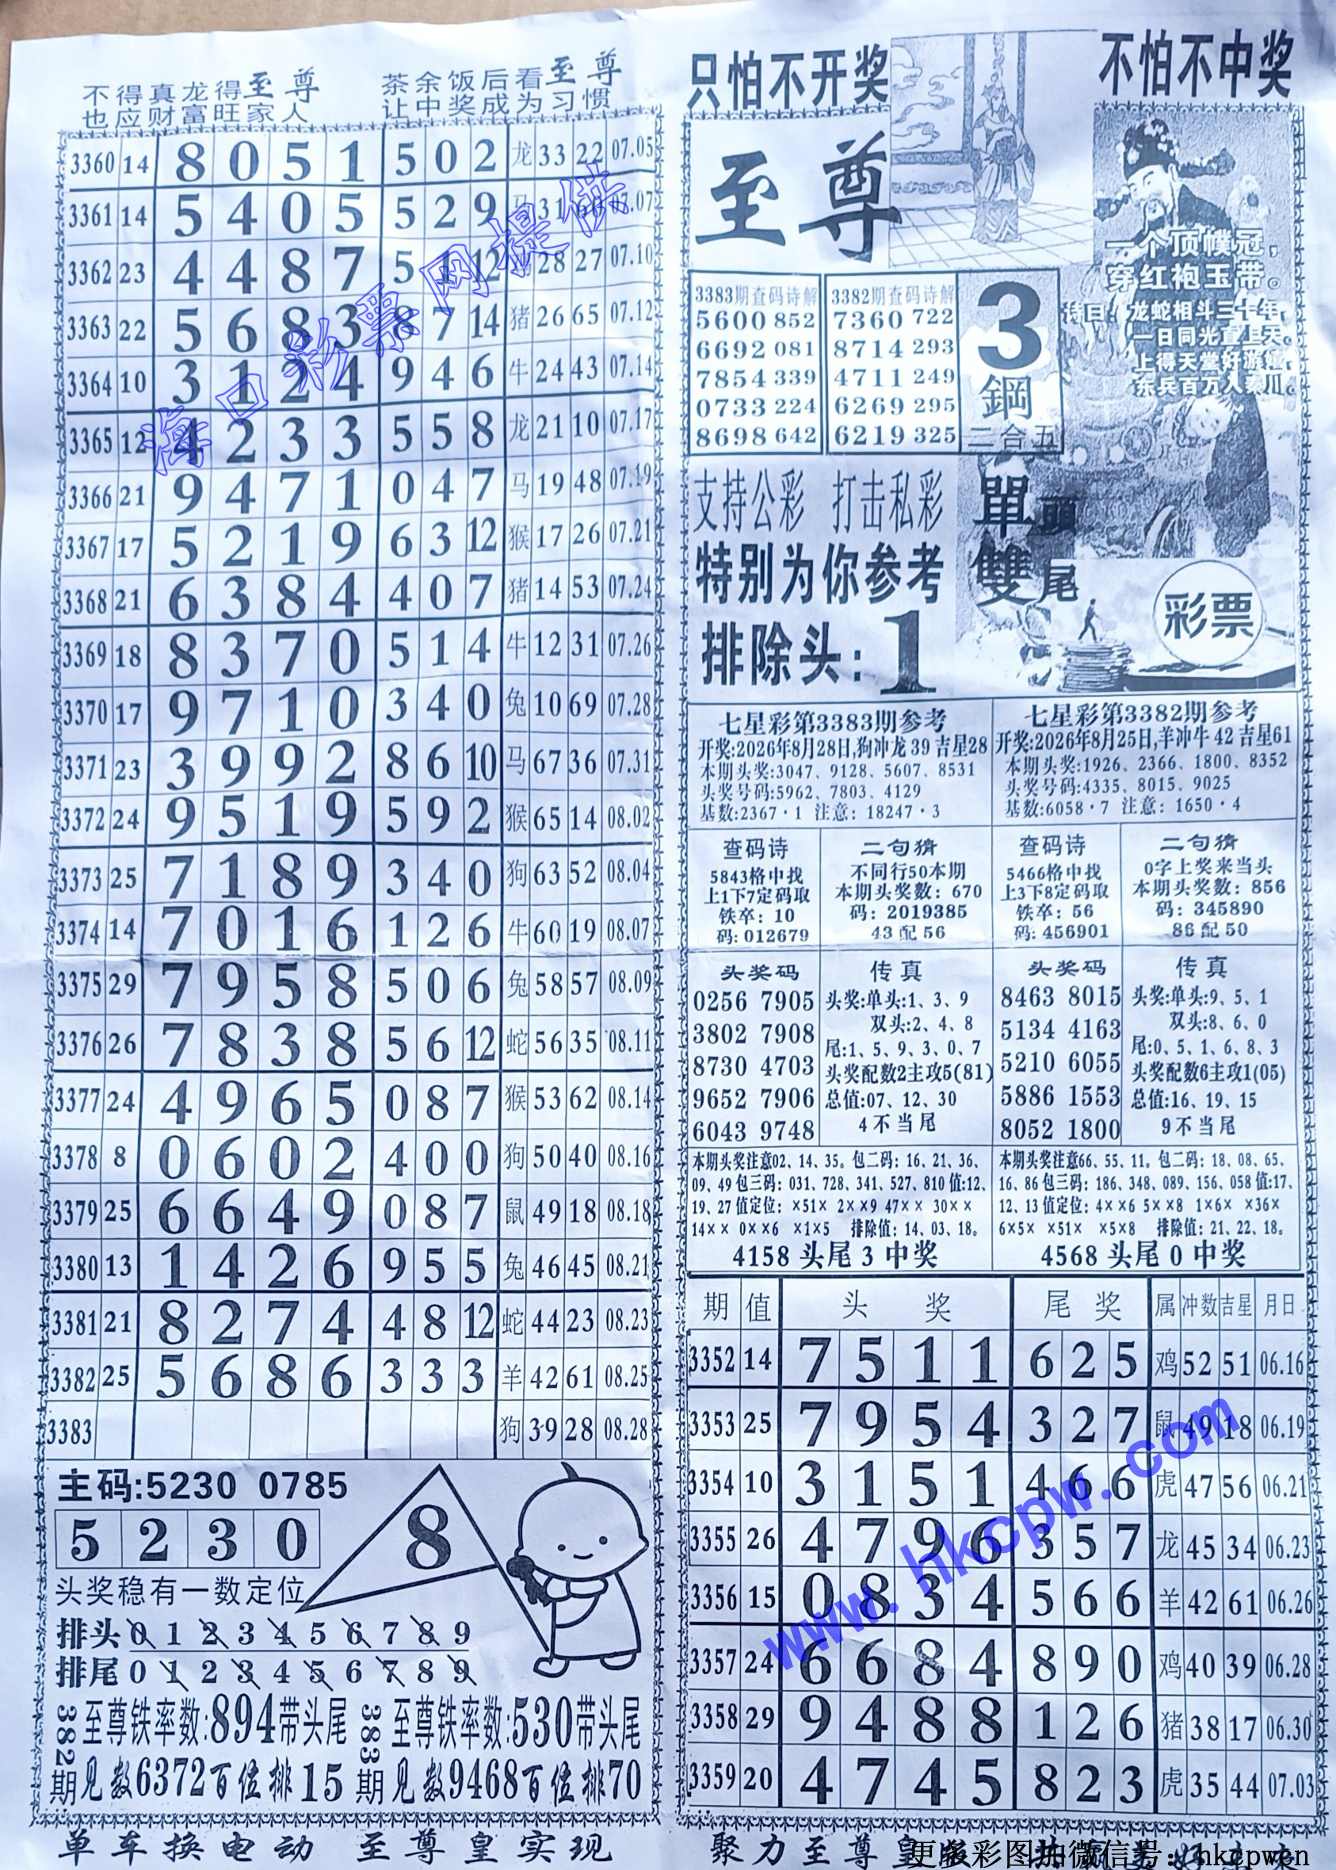 不得真龙得至尊
也应财富旺家人
茶余饭后看至尊
让中奖成为习惯
3360 14 8 0 5 1 5 0 2 龙 33 22 07.05
3361 14 5 4 0 5 5 2 9 马 31 07.07
3362 23 4 4 8 7 5 12 28 27 07.10
3363 22 5 6 8 3 8 7 14 猪 26 65 07.12
3364 10 3 1 2 4 9 4 6 牛 24 43 07.14
3365 12 4 2 3 3 5 5 8 龙 21 10 07.17
3366 21 9 4 7 1 0 4 7 马 19 48 07.19
3367 17 5 2 1 9 6 3 12 猴 17 26 07.21
3368 21 6 3 8 4 4 0 7 猪 14 53 07.24
3369 18 8 3 7 0 5 1 4 牛 12 31 07.26
3370 17 9 7 1 0 3 4 0 兔 10 69 07.28
3371 23 3 9 9 2 8 6 10 马 67 36 07.31
3372 24 9 5 1 9 5 9 2 猴 65 14 08.02
3373 25 7 1 8 9 3 4 0 狗 63 52 08.04
3374 14 7 0 1 6 1 2 6 牛 60 19 08.07
3375 29 7 9 5 8 5 0 6 兔 58 57 08.09
3376 26 7 8 3 8 5 6 12 蛇 56 35 08.11
3377 24 4 9 6 5 0 8 7 猴 53 62 08.14
3378 8 0 6 0 2 4 0 0 狗 50 40 08.16
3379 25 6 6 4 9 0 8 7 鼠 49 18 08.18
3380 13 1 4 2 6 9 5 5 兔 46 45 08.21
3381 21 8 2 7 4 4 8 12 蛇 44 23 08.23
3382 25 5 6 8 6 3 3 3 羊 42 61 08.25
3383 狗 39 28 08.28
海口彩票网提供
主码:5230 0785
5 2 3 0
8
头奖稳有一数定位
排头 0 1 2 3 4 5 6 7 8 9
排尾 0 1 2 3 4 5 6 7 8 9
382期 至尊铁率数:894带头尾
见数6372百位排15
383期 至尊铁率数:530带头尾
见数9468百位排70
单车换电动 至尊皇实现
只怕不开奖
不怕不中奖
至尊
一个顶幞冠，
穿红袍玉带。
诗曰：龙蛇相斗三十年，
一日同光直上天。
上得天堂好游嬉，
东兵百万入秦川。
3383期查码诗解
5600 852
6692 081
7854 339
0733 224
8698 642
3382期查码诗解
7360 722
8714 293
4711 249
6269 295
6219 325
3
鋼
二合五
單頭
雙尾
支持公彩 打击私彩
特别为你参考
排除头：1
彩票
七星彩第3383期参考
开奖:2026年8月28日,狗冲龙 39 吉星28
本期头奖:3047、9128、5607、8531
头奖号码:5962、7803、4129
基数:2367·1 注意：18247·3
七星彩第3382期参考
开奖:2026年8月25日,羊冲牛 42 吉星61
本期头奖:1926、2366、1800、8352
头奖号码:4335、8015、9025
基数:6058·7 注意：1650·4
查码诗
5843格中找
上1下7定码取
铁卒：10
码：012679
二句猜
不同行50本期
本期头奖数：670
码：2019385
43 配 56
查码诗
5466格中找
上3下8定码取
铁卒：56
码：456901
二句猜
0字上奖来当头
本期头奖数：856
码：345890
86 配 50
头奖码
0256 7905
3802 7908
8730 4703
9652 7906
6043 9748
传真
头奖:单头:1、3、9
双头:2、4、8
尾:1、5、9、3、0、7
头奖配数2主攻5(81)
总值:07、12、30
4不当尾
头奖码
8463 8015
5134 4163
5210 6055
5886 1553
8052 1800
传真
头奖:单头:9、5、1
双头:8、6、0
尾:0、5、1、6、8、3
头奖配数6主攻1(05)
总值:16、19、15
9不当尾
本期头奖注意02、14、35。包二码：16、21、36、
09、49 包三码：031、728、341、527、810 值:12、
19、27 值定位： ×51× 2××9 47×× 30××
14×× 0××6 ×1×5 排除值：14、03、18。
4158 头尾 3 中奖
本期头奖注意66、55、11。包二码：18、08、65、
16、86 包三码：186、348、089、156、058 值:17、
12、13 值定位：4××6 5××8 1×6× ×36×
6×5× ×51× ×5×8 排除值：21、22、18。
4568 头尾 0 中奖
期 值 头奖 尾奖 属 冲数 吉星 月日
3352 14 7 5 1 1 6 2 5 鸡 52 51 06.16
3353 25 7 9 5 4 3 2 7 鼠 49 18 06.19
3354 10 3 1 5 1 4 6 6 虎 47 56 06.21
3355 26 4 7 9 6 3 5 7 龙 45 34 06.23
3356 15 0 8 3 4 5 6 6 羊 42 61 06.26
3357 24 6 6 8 4 8 9 0 鸡 40 39 06.28
3358 29 9 4 8 8 1 2 6 猪 38 17 06.30
3359 20 4 7 4 5 8 2 3 虎 35 44 07.03
www.hkcpw.com
聚力至尊皇版
更多彩图加微信号：hkcpwcn